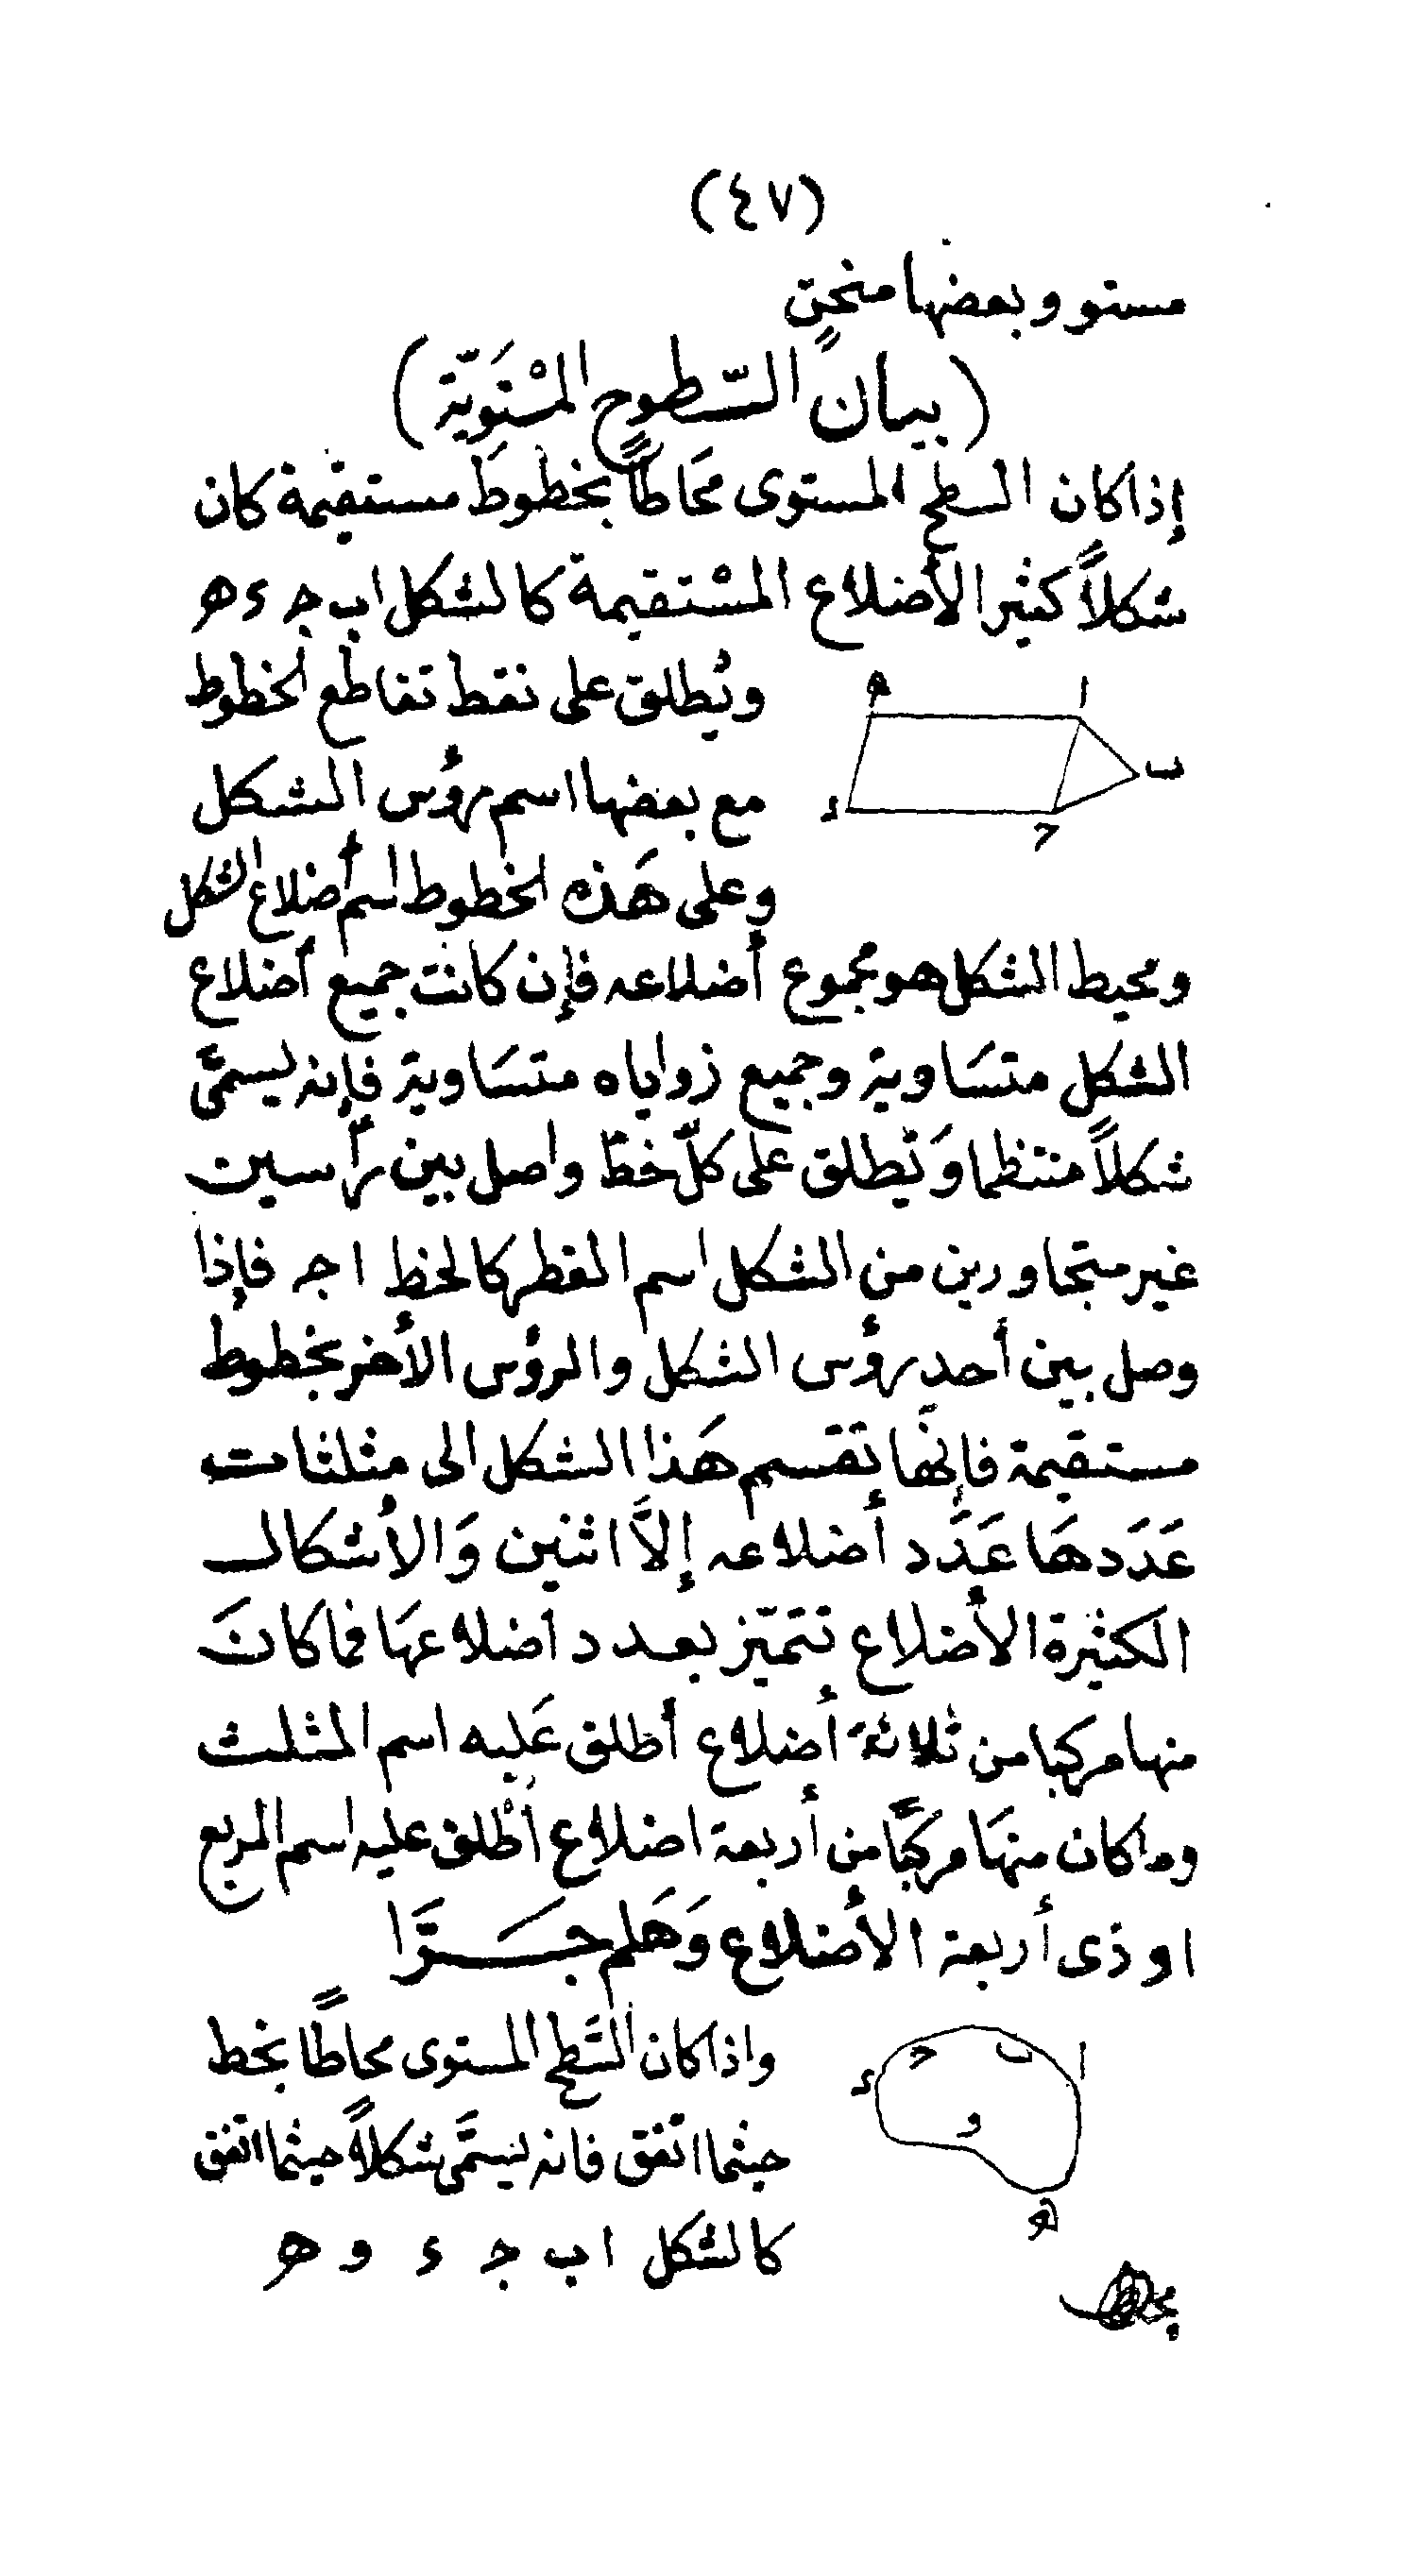 (٤٧)
مستو وبعضها منحنٍ
(بيان السّطوح المسْتَويّة)
إذا كان السطح المستوى محَاطاً بخطوط مستقيمة كان
شكلاً كثير الأضلاع المسْتقيمة كالشكل ا ب جـ ء هـ
ه ا
ب
ء
حـ
ويُطلق على نقط تقاطع الخطوط
مع بعضها اسم رؤس الشكل
وعلى هَذه الخطوط اسم أضلاع الشكل
ومحيط الشكل هو مجموع أضلاعه فإن كانت جميع أضلاع
الشكل متسَاوية وجميع زواياه متسَاوية فإنه يسمىَّ
شكلاً منتظما وَيُطلق على كلّ خطّ واصل بين رأسين
غير متجاورين من الشكل اسم القطر كالخط ا جـ فإذا
وصل بين أحد رؤس الشكل والرؤس الأخر بخطوط
مستقيمة فإنهَّا تقسم هَذا الشكل الى مثلثات
عَدَدهَا عَدَد أضلاعه إلاَّ اثنين وَالأشكال
الكثيرة الأضلاع تتميّز بعدد أضلاعهَا فما كانَ
منها مركبا من ثلاثة أضلاع أطلق عَليه اسم المثلث
وما كان منهَا مركبًّا من أربعة اضلاع أطْلق عليه اسم المربع
او ذى أربعة الأضلاع وَهَلم جَــرَّا
ا ب حـ
ء
و
هـ
واذا كان السَّطح المستوى محاطًا بخط
حيثما اتفق فانه يسمَّى شكلاً حيثما اتفق
كالشكل ا ب جـ ء و هـ